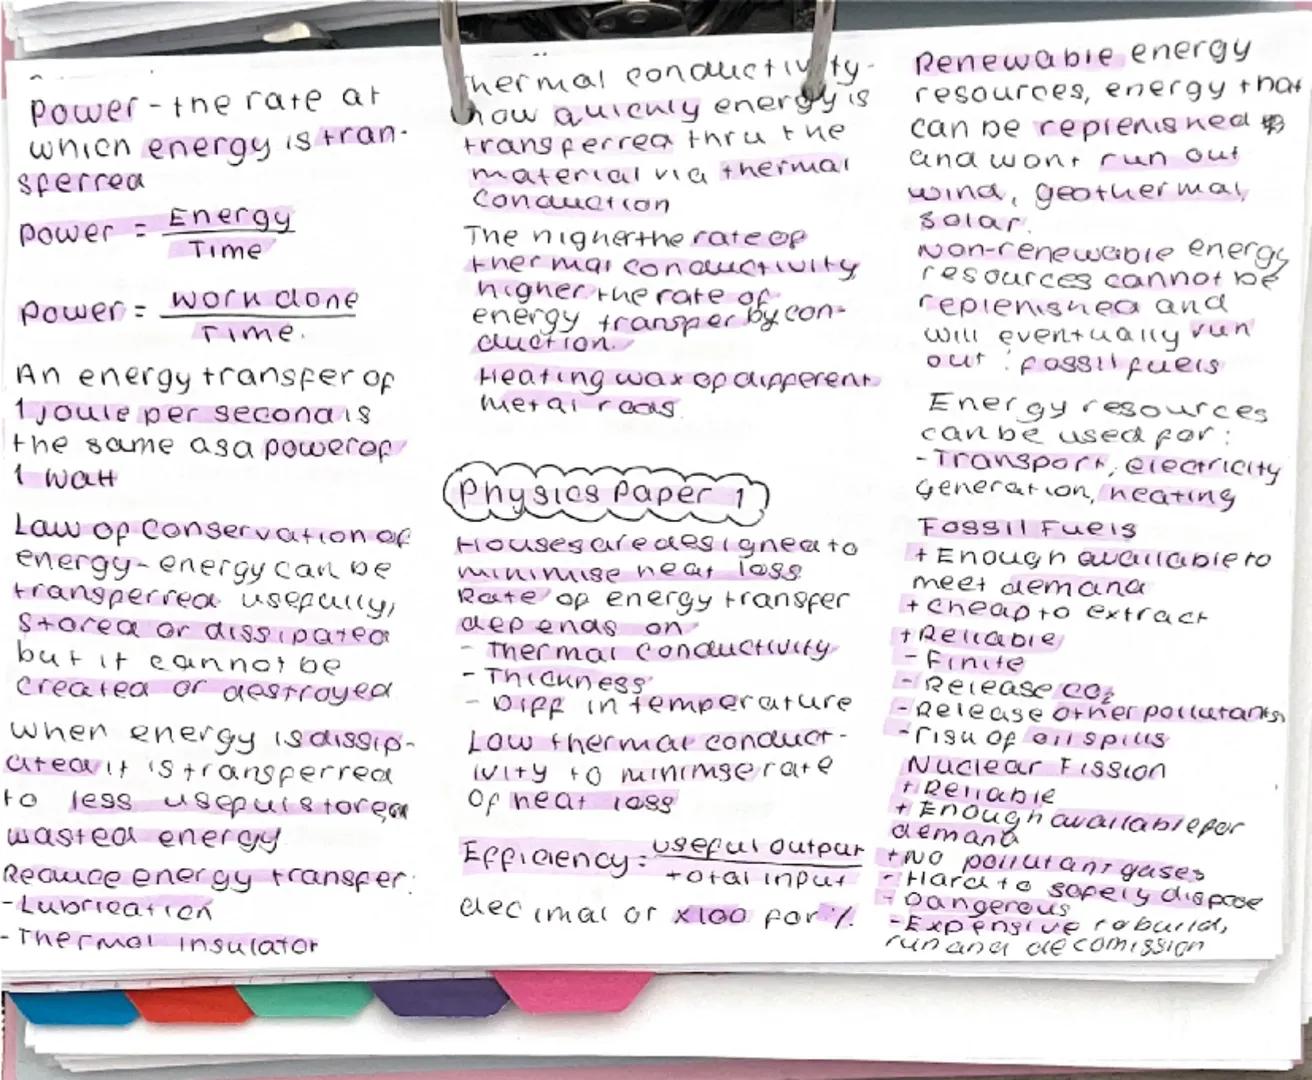 Power - the rate at
which energy is tran-
sferred
Power = Energy
Time
Power = work done
Time.
An energy transfer of
1 joule per second is
the same as a power of
1 watt
Law of conservation of
energy - energy can be
transferred usefully,
stored or dissipated
but it cannot be
created or destroyed
When energy is dissip-
ated it is transferred
to less useful stored
wasted energy
Reduce energy transfer:
- Lubrication
- Thermal insulator
Thermal conductivity -
how quickly energy is
transferred thru the
material via thermal
conduction
The higher the rate of
thermal conductivity
higher the rate of
energy transfer by con-
duction.
Heating wax of different
metal rods.
Physics Paper 1
Houses are designed to
minimise heat loss
Rate of energy transfer
depends on
- Thermal conductivity
- Thickness
- Diff in temperature
Low thermal conduct-
ivity to minimise rate
of heat loss
Efficiency = useful output
total input
decimal or x100 for %.
Renewable energy
resources, energy that
can be replenished
and wont run out
wind, geothermal,
solar.
Non-renewable energy
resources cannot be
replenished and
will eventually run
out : fossil fuels
Energy resources
can be used for:
- Transport, electricity
generation, heating
Fossil Fuels
+ Enough available to
meet demand
+ cheap to extract
+ Reliable
- Finite
- Release CO2
- Release other pollutants
- risk of oil spills
Nuclear Fission
+ Reliable
+ Enough available for
demand
+ No pollutant gases
- Hard to safely dispose
- Dangerous
- Expensive to build,
run and decomission